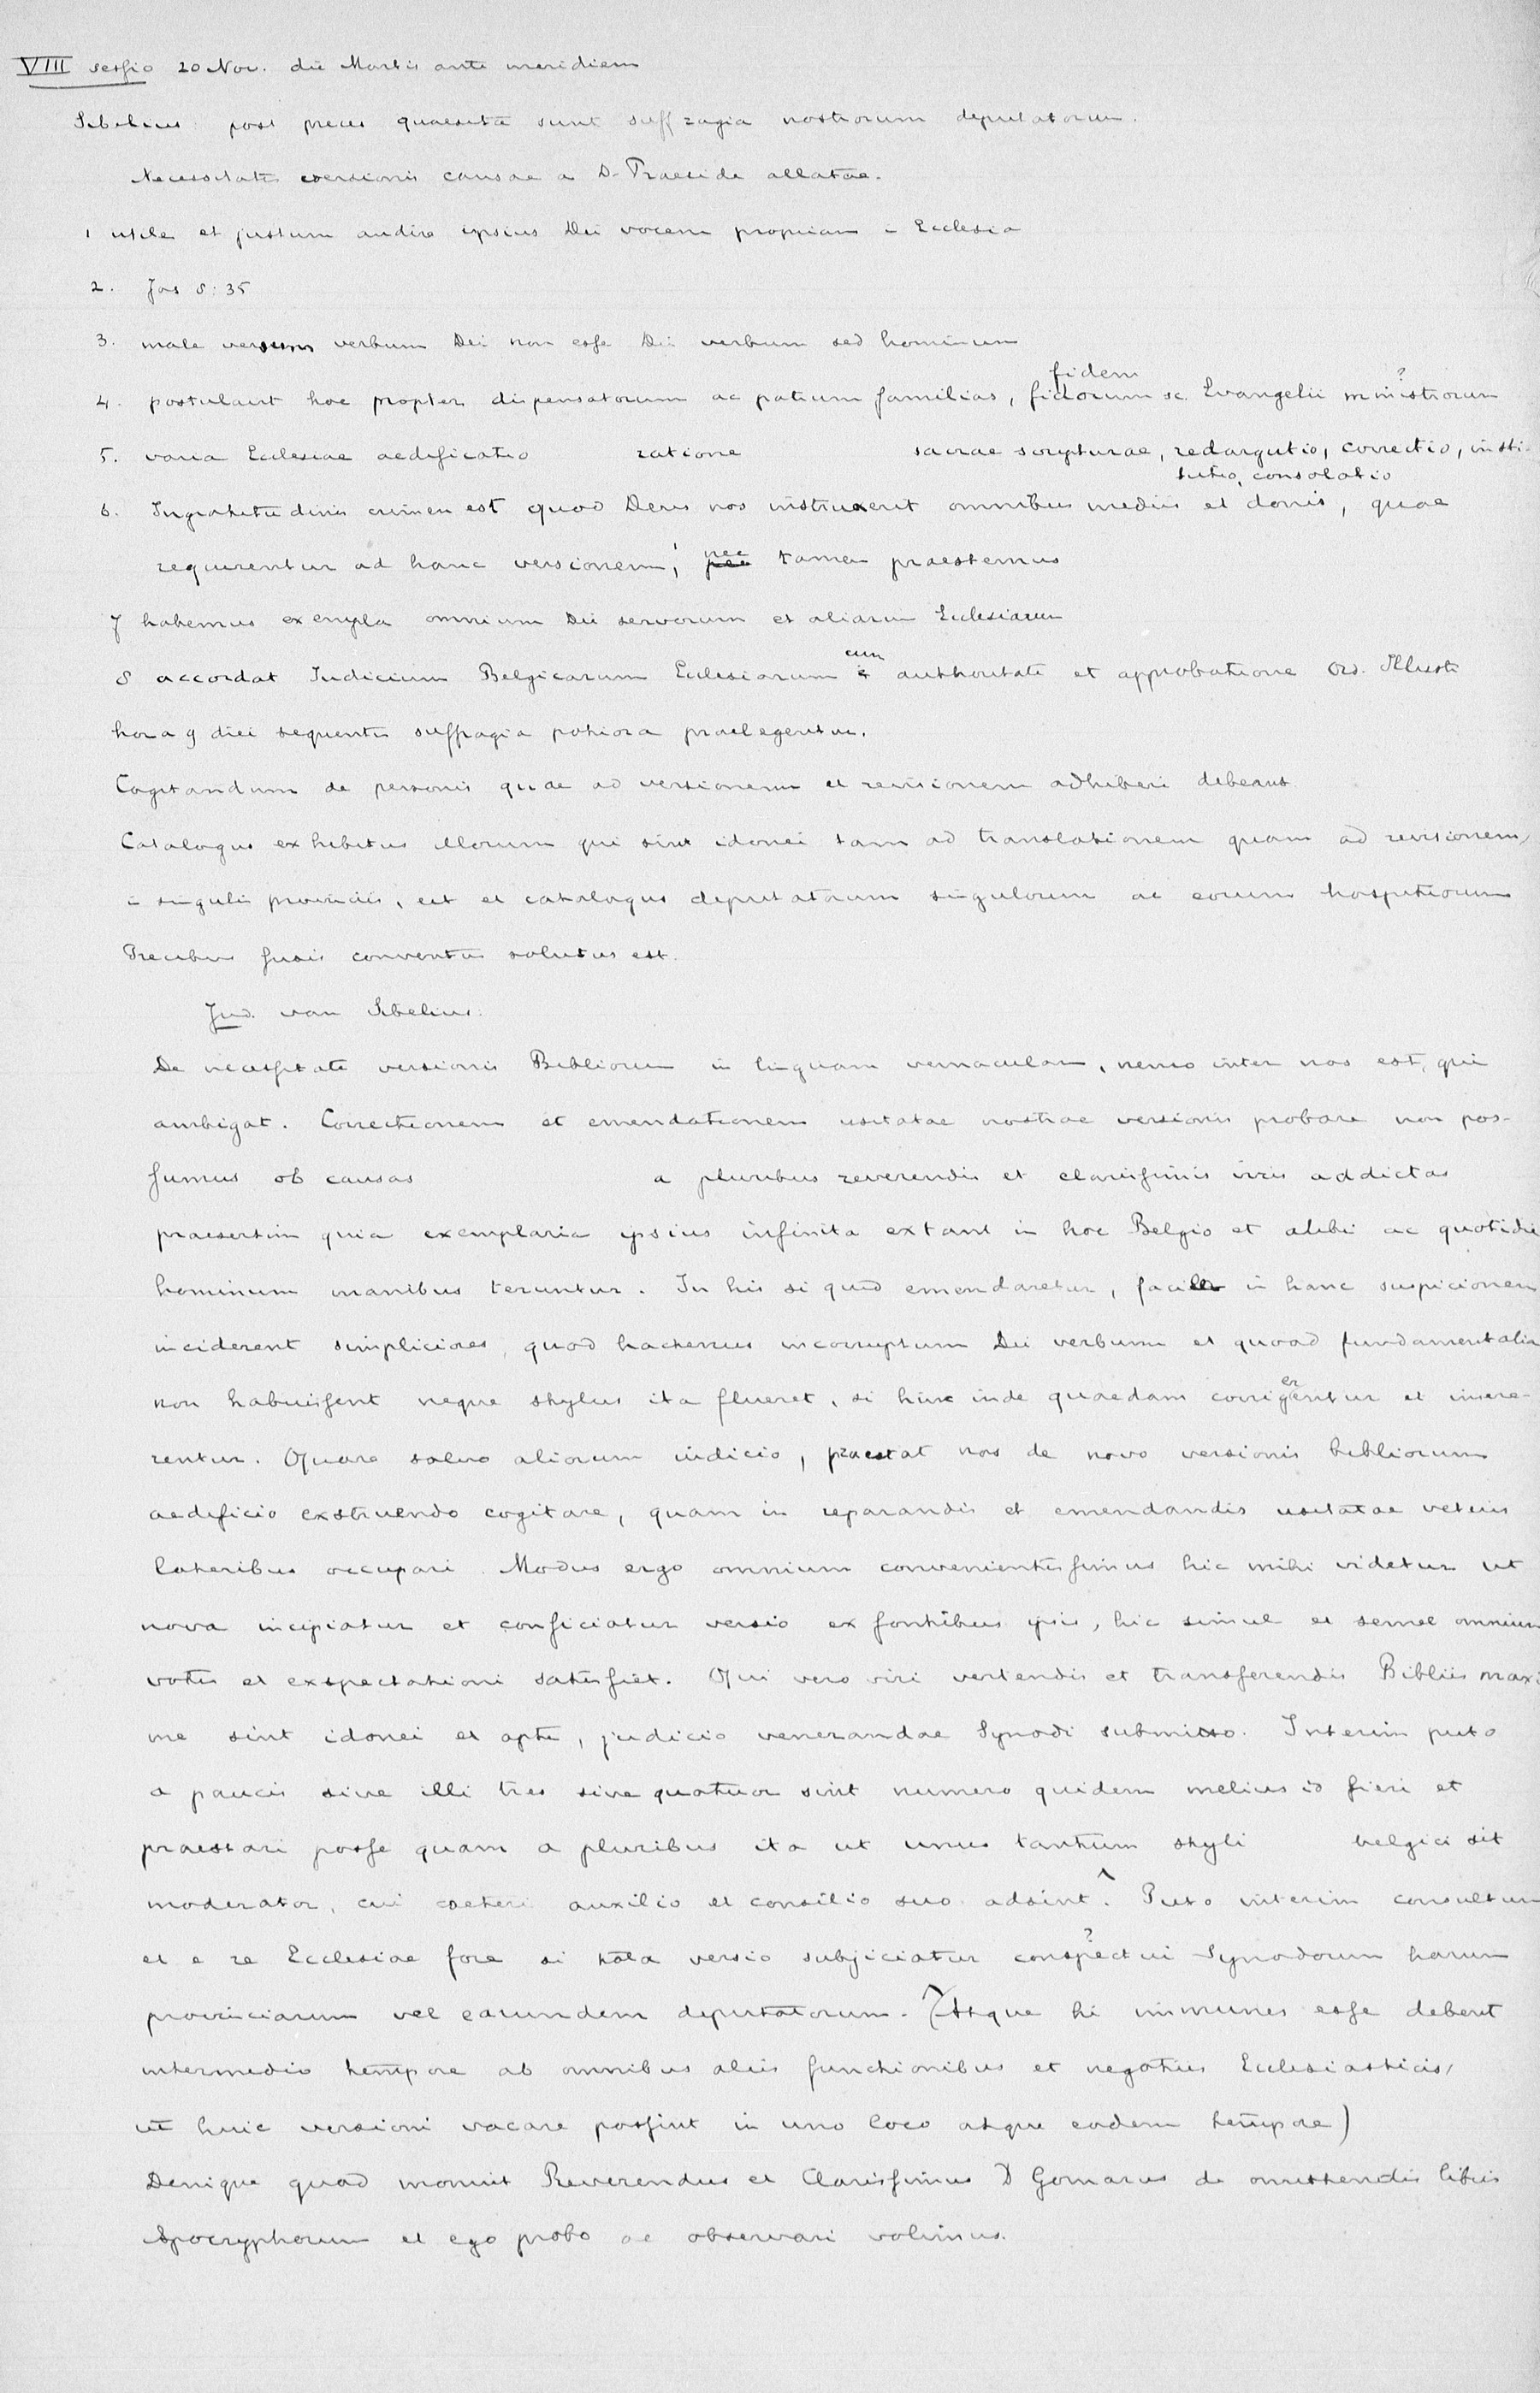 VIII sessio 20 Nov. die Martis ante meridiem
Sibelius: post preces quaesita sunt suffragia nostrorum deputatorum.
Necessitatis versionis causae a D. Praeside allatae.
1 utile et justum audire ipsius Dei vocem propriam in Ecclesia
2. Jos 8:35
3. male versum verbum Dei non esse Dei verbum sed hominum
fidem ?
4. postulant hoc propter dispensatorum ac patrum familias, fidorum sc. Evangelii ministrorum
5. varia Ecclesiae aedificatio ratione sacrae scripturae, redargutio, correctio, insti-
tutio, consolatio
6. Ingratitudinis crimen est quod Deus nos instruxerit omnibus mediis et donis, quae
requirentur ad hanc versionem, nec tamen praestemus
7 habemus exempla omnium Dei servorum et aliarum Ecclesiarum
cum
8 accordat Iudicium Belgicarum Ecclesiarum & authoritate et approbatione Ord. Illustr
hora 9 diei sequentis suffragia potiora praelegentur.
Cogitandum de personis quae ad versionem et revisionem adhiberi debeant.
Catalogus exhibitus illorum qui sint idonei tam ad translationem quam ad revisionem,
in singulis provinciis, est et catalogus deputatorum singulorum ac eorum hospitiorum
Precibus fusis conventus solutus est.
Jud. van Sibelius:
De necessitate versionis Bibliorum in linguam vernaculam, nemo inter nos est, qui
ambigat. Correctionem et emendationem usitatae nostrae versionis probare non pos-
sumus ob causas a pluribus reverendis et clarissimis viris addictas
praesertim quia exemplaria ipsius infinita extant in hoc Belgio et alibi ac quotidie
hominum manibus teruntur. In his si quid emendaretur, facile in hanc suspicionem
inciderent simpliciores, quod hactenus incorruptum Dei verbum et quoad fundamentalia
non habuissent neque stylus ita flueret, si hinc inde quaedam corrigerentur et insere-
rentur. Quare salvo aliorum iudicio, praestat nos de novo versionis bibliorum
aedificio exstruendo cogitare, quam in reparandis et emendandis usitatae veteris
lateribus occupari. Modus ergo omnium convenientissimus hic mihi videtur ut
nova incipiatur et conficiatur versio ex fontibus ipsis, hic simul et semel omnium
votis et exspectationi satisfiet. Qui vero viri vertendis et transferendis Bibliis maxi
me sint idonei et apti, judicio venerandae Synodi submitto. Interim puto
a paucis sive illi tres sive quatuor sint numero quidem melius id fieri et
praestari posse quam a pluribus ita ut unus tantum styli belgici sit
moderator, cui caeteri auxilio et consilio suo adsint. Puto interim consultum
?
et e re Ecclesiae fore si tota versio subjiciatur conspectui Synodorum harum
provinciarum vel earundem deputatorum. (Atque hi immunes esse debent
intermedio tempore ab omnibus aliis functionibus et negotiis Ecclesiasticis,
ut huic versioni vacare possint in uno loco atque eodem tempore)
Denique quod monuit Reverendus et Clarissimus D Gomarus de omittendis libris
Apocryphorum et ego probo ac observari volimus.